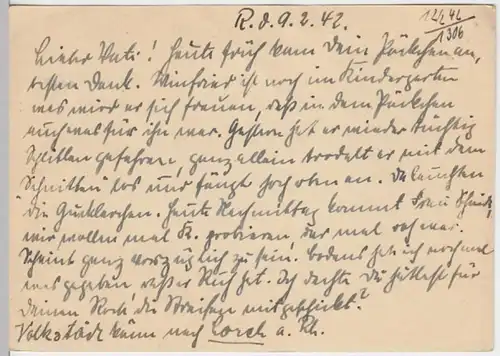 R. d. 9. 2. 42.
12/2 42
1306
Lieber Vati! Heute früh kam Dein Päckchen an,
besten Dank. Winfried ist noch im Kindergarten
was wird er sich freuen, daß in dem Päckchen
auch was für ihn war. Gestern hat er wieder tüchtig
Schlitten gefahren, ganz allein trodelt er mit dem
Schlitten los und fängt hoch oben an. Da leuchten
die Guckelchen. Heute Nachmittag kommt Frau
wir wollen mal K. probieren, der mal roh war.
Scheint ganz vorzüglich zu sein. hat ich noch mal
was gegeben, hat. Ich dachte Du hättest für
Deinen Rock die Streifen mitgeschickt?
Volkstädt kann nach Lorch a. Rh.